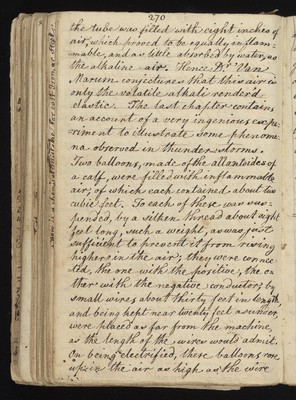 270
the tube was filled with eight inches of
air, which proved to be equally inflam-
mable, and as little absorbed by water, as
the alkaline air. Hence Dr Van
Marum conjectures that their air is
only the volatile alkali render'd
elastic. The last chapter contains
an account of a very ingenious expe-
riment to illustrate some phenome-
na observed in thunder storms.
Two balloons, made of the allantoides of
a calf, were filled with inflammable
air, of which each contained about two
cubic feet. To each of these was sus-
pended, by a silken thread about eight
feet long, such a weight, as was just
sufficient to prevent it from rising
higher in the air; they were connec-
ted, the one with the positive, the o-
ther with the negative conductor, by
small wires about thirty feet in length,
and being kept near twenty feet asunder,
were placed as far from the machine,
as the length of the wires would admit.
On being electrified, these balloons rose
up in the air as high as the wire